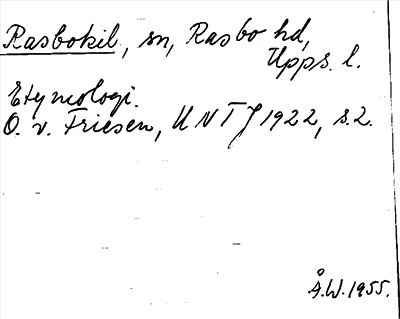 Rasbokil, sn, Rasbo hd,
Upps. l.
Etymologi.
O. v. Friesen, UNT J 1922, s. 2.
Å.W. 1955.